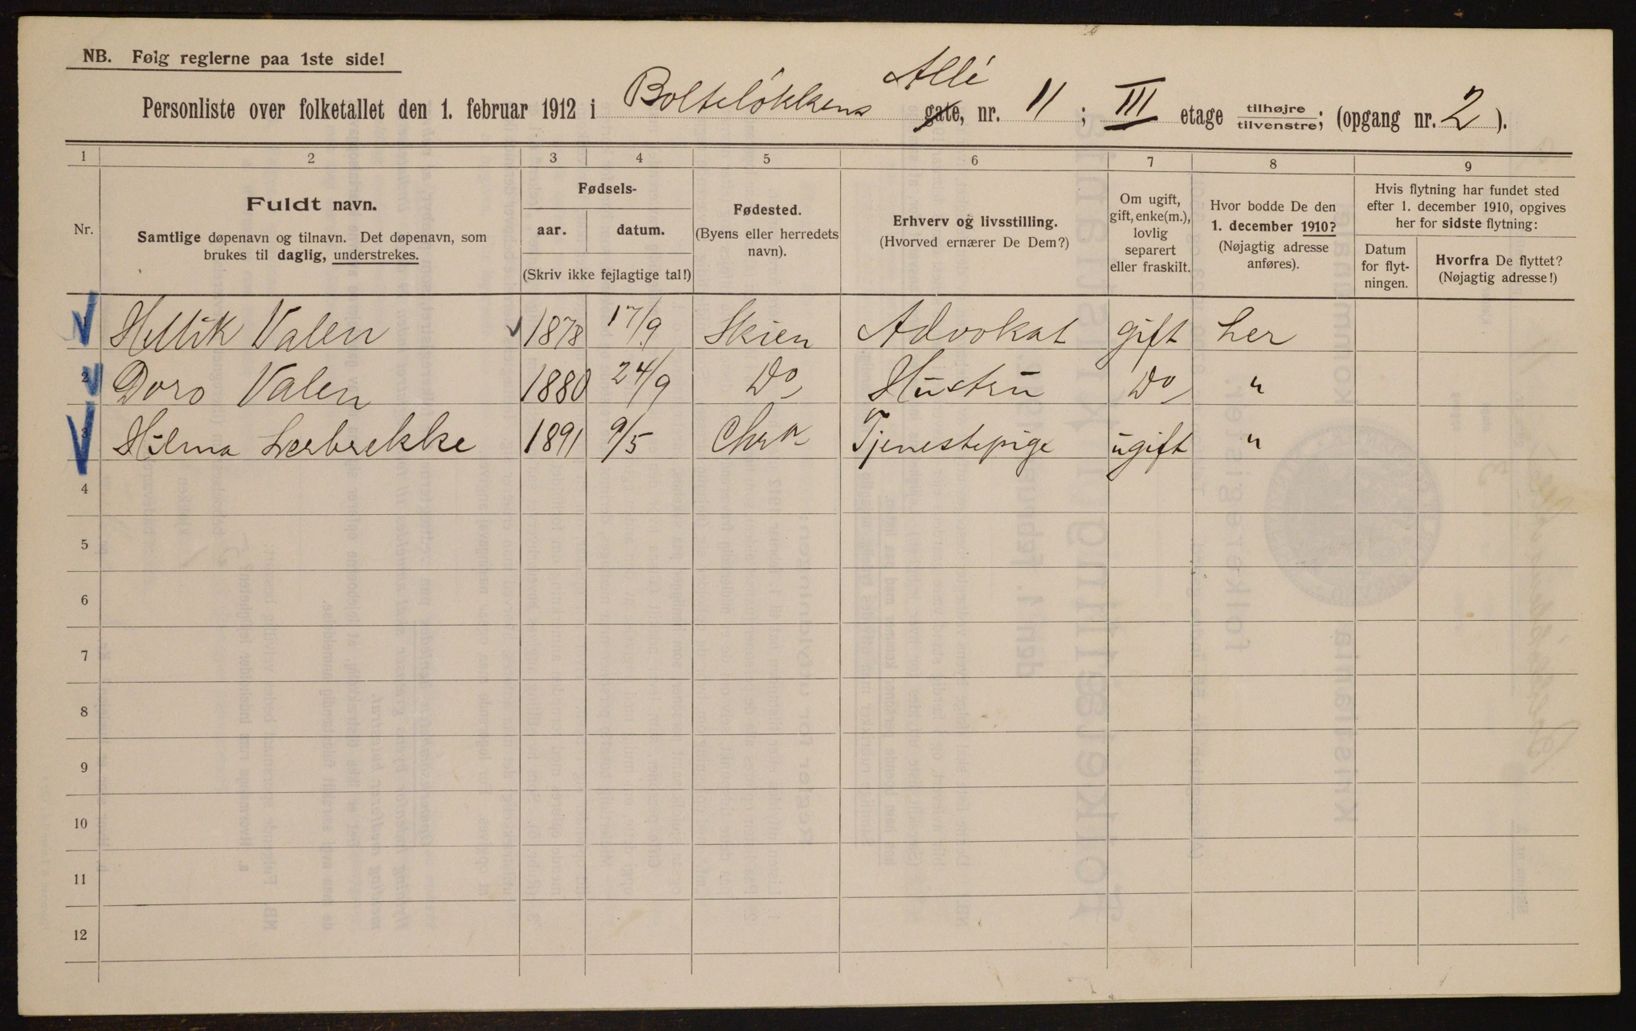 NB. Følg reglerne paa 1ste side!
Personliste over folketallet den 1. februar 1912 i Bolteløkkens Allé gate, nr. 11 ; III etage tilhøjre tilvenstre; (opgang nr. 2 ).
1 2 3 4 5 6 7 8 9
Nr.
Fuldt navn.
Samtlige døpenavn og tilnavn. Det døpenavn, som
brukes til daglig, understrekes.
Fødsels-
aar. datum.
(Skriv ikke fejlagtige tal!)
Fødested.
(Byens eller herredets
navn).
Erhverv og livsstilling.
(Hvorved ernærer De Dem?)
Om ugift,
gift, enke(m.),
lovlig
separert
eller fraskilt.
Hvor bodde De den
1. december 1910?
(Nøjagtig adresse
anføres).
Hvis flytning har fundet sted
efter 1. december 1910, opgives
her for sidste flytning:
Datum
for flyt-
ningen.
Hvorfra De flyttet?
(Nøjagtig adresse!)
1 Valen 1878 17/9 Skien Advokat gift her
2 Doro Valen 1880 24/9 Do Hustru Do "
3 Hilma Lærbrekke 1891 9/5 Chra Tjenestepige ugift "
4
5
6
7
8
9
10
11
12